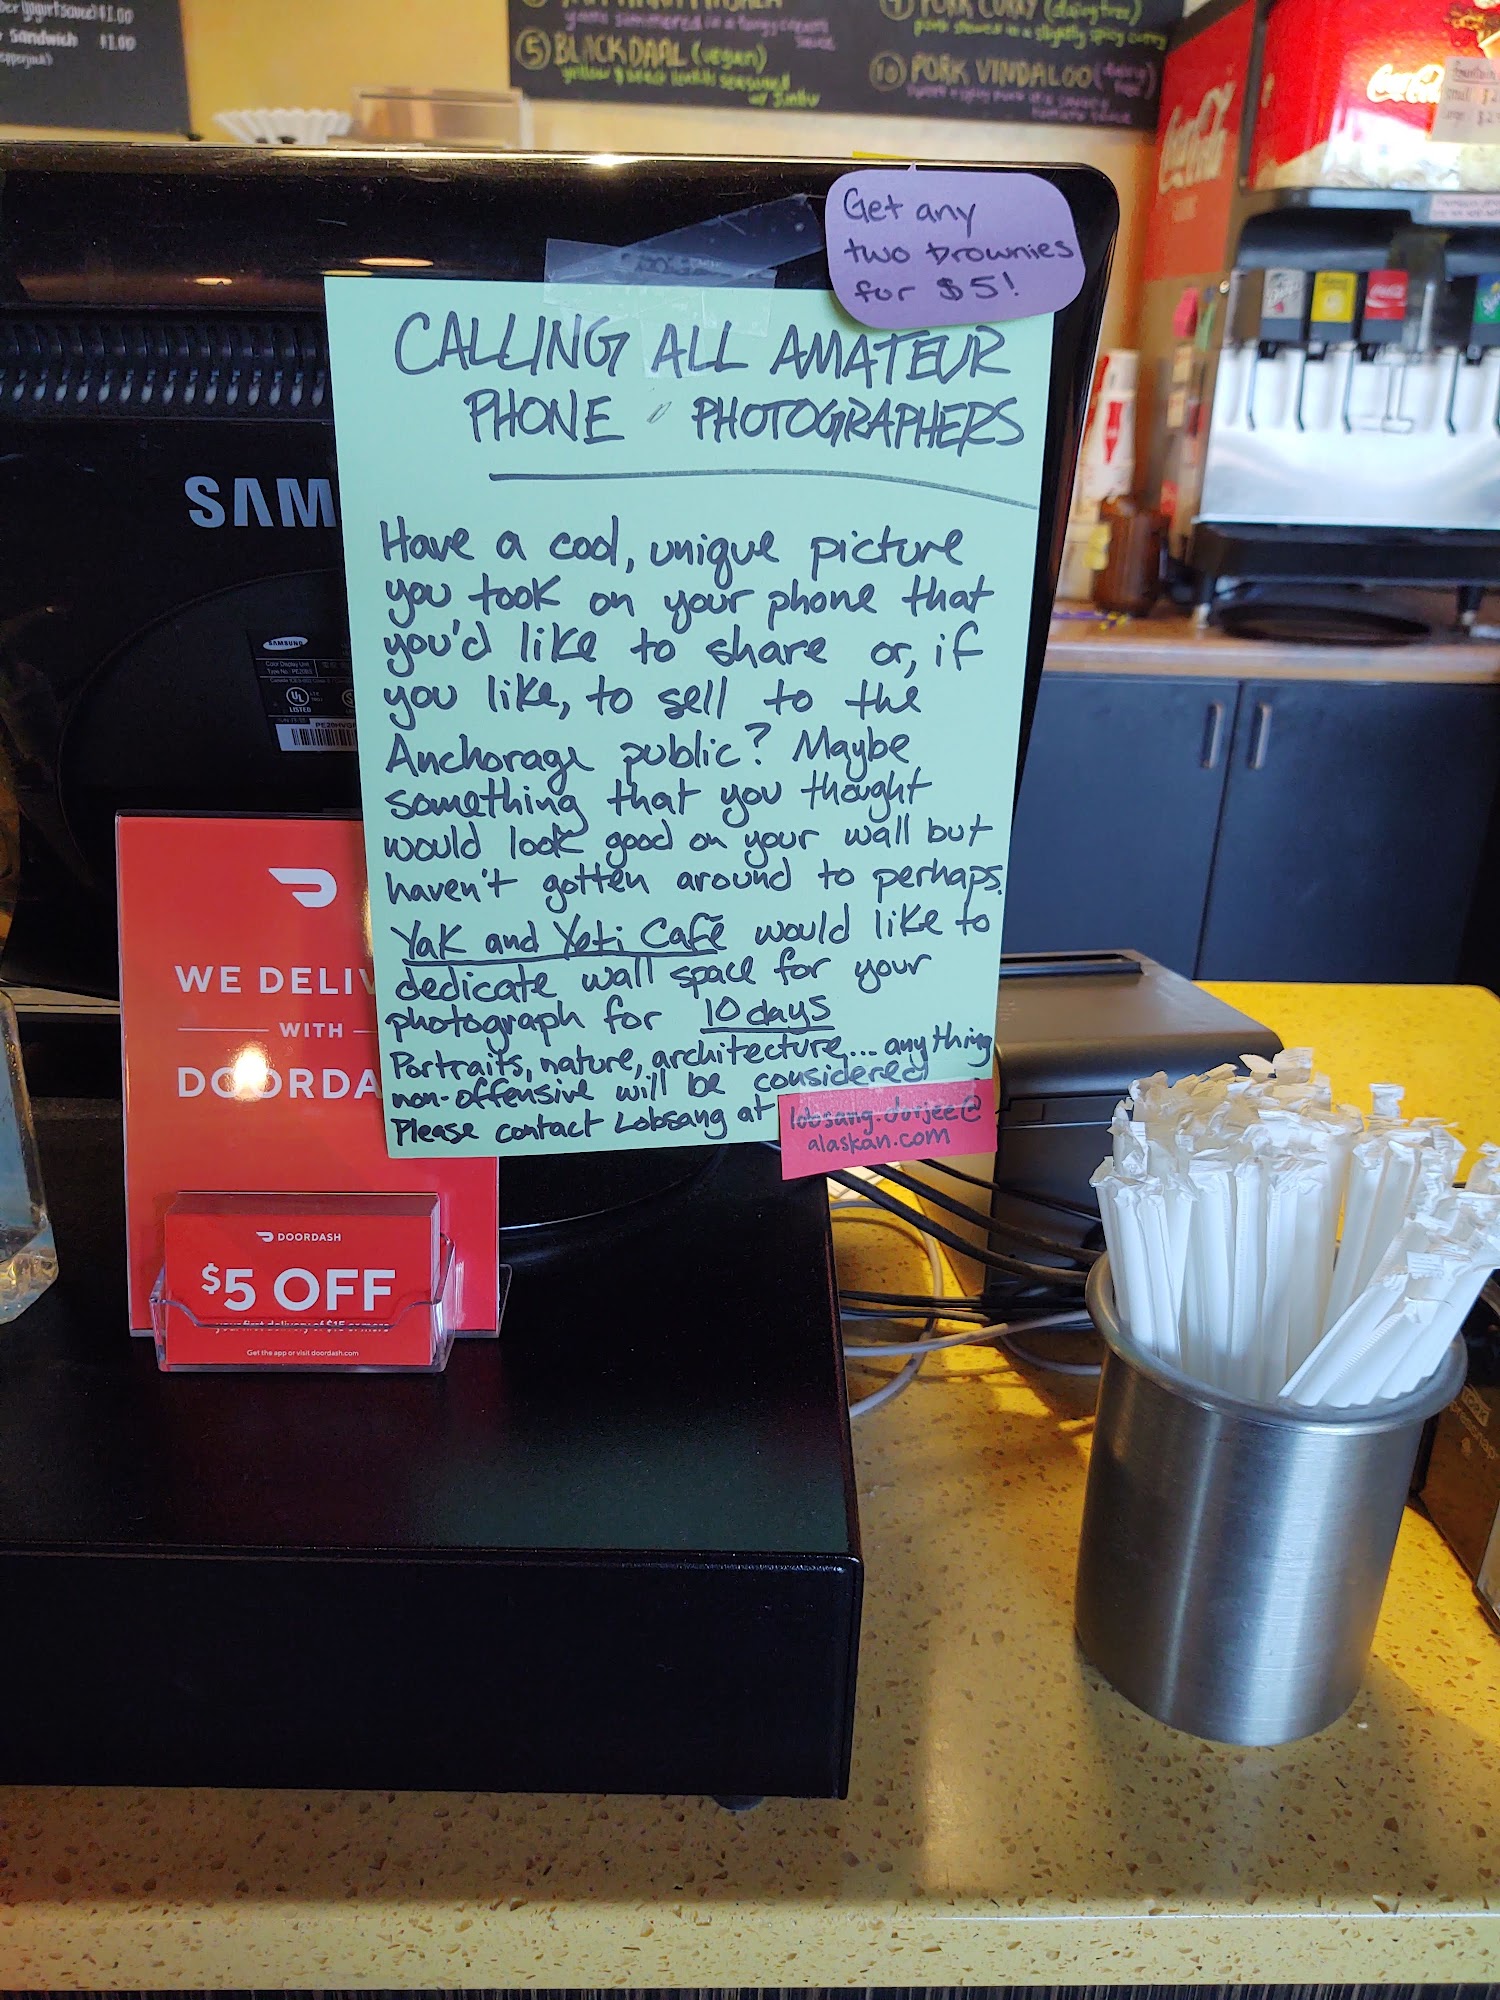 sauce) $1.00
Sandwich $1.00
⑤ BLACK DAAL (vegan)
PORK CURRY (dairy free)
pork stewed in a slightly spicy curry
⑩ PORK VINDALOO
Coca-Cola
Get any
two brownies
for $5!
CALLING ALL AMATEUR
PHONE PHOTOGRAPHERS
Have a cool, unique picture
you took on your phone that
you'd like to share or, if
you like, to sell to the
Anchorage public? Maybe
something that you thought
would look good on your wall but
haven't gotten around to perhaps.
Yak and Yeti Café would like to
dedicate wall space for your
photograph for 10 days
Portraits, nature, architecture... anything
non-offensive will be considered
Please contact Lobsang at
lobsang.dorjee@
alaskan.com
SAM
SAMSUNG
UL
LISTED
WE DELIV
WITH
DOORDA
DOORDASH
$5 OFF
your first delivery of $15 or more
Get the app or visit doordash.com